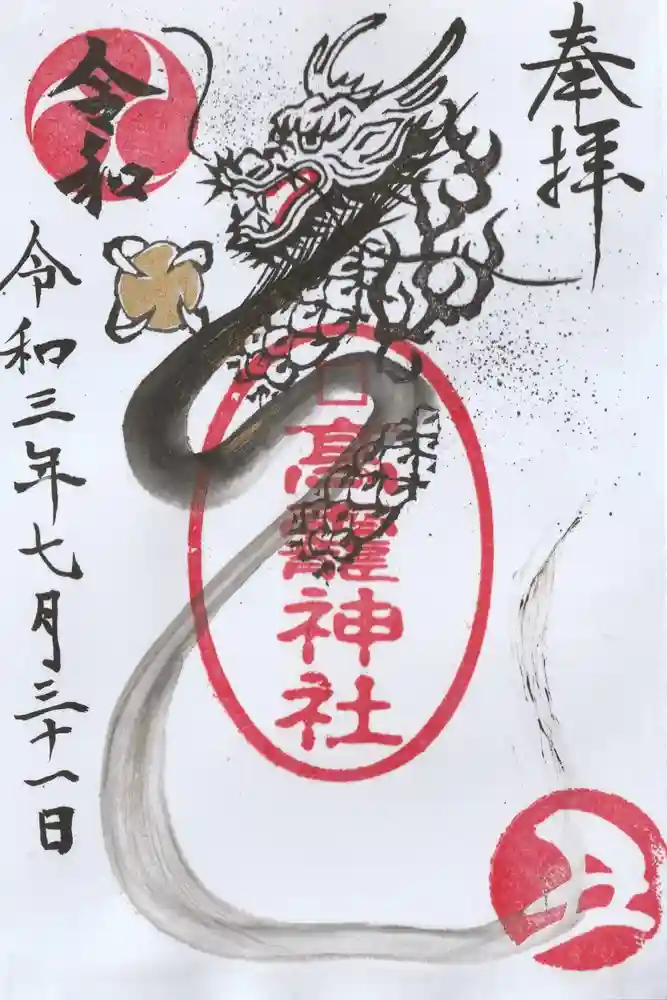 奉拝
高龗神社
令和
令和三年七月三十一日
丑